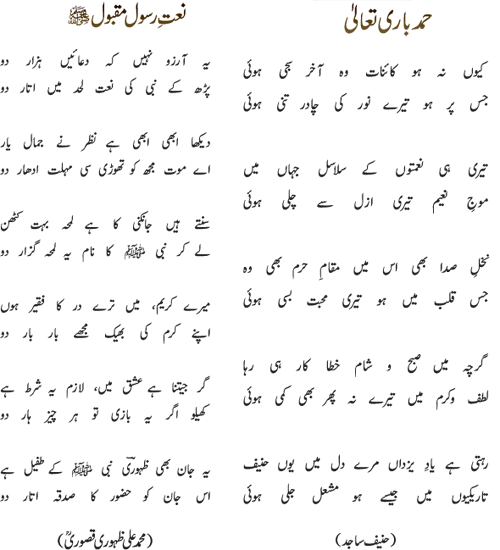 حمد باری تعالیٰ
کیوں نہ ہو کائنات وہ آخر سجی ہوئی
جس پر ہو تیرے نور کی چادر تنی ہوئی
تیری ہی نعمتوں کے سلاسل جہاں میں
موجِ نعیم تیری ازل سے چلی ہوئی
نخلِ صدا بھی اس میں مقامِ حرم بھی وہ
جس قلب میں ہو تیری محبت بسی ہوئی
گرچہ میں صبح و شام خطا کار ہی رہا
لطف وکرم میں تیرے نہ پھر بھی کمی ہوئی
رہتی ہے یادِ یزداں مرے دل میں یوں حنیف
تاریکیوں میں جیسے ہو مشعل جلی ہوئی
(حنیف ساجد)
نعت رسول مقبول ﷺ
یہ آرزو نہیں کہ دعائیں ہزار دو
پڑھ کے نبی کی نعت لحد میں اتار دو
دیکھا ابھی ابھی ہے نظر نے جمال یار
اے موت مجھ کو تھوڑی سی مہلت ادھار دو
سنتے ہیں جانکنی کا ہے لمحہ بہت کٹھن
لے کر نبی ﷺ کا نام یہ لمحہ گزار دو
میرے کریم، میں ترے در کا فقیر ہوں
اپنے کرم کی بھیک مجھے بار بار دو
گر جیتنا ہے عشق میں، لازم یہ شرط ہے
کھیلو اگر یہ بازی تو ہر چیز ہار دو
یہ جان بھی ظہوریؔ نبی ﷺ کے طفیل ہے
اس جان کو حضور کا صدقہ اتار دو
(محمد علی ظہوری قصوریؒ)